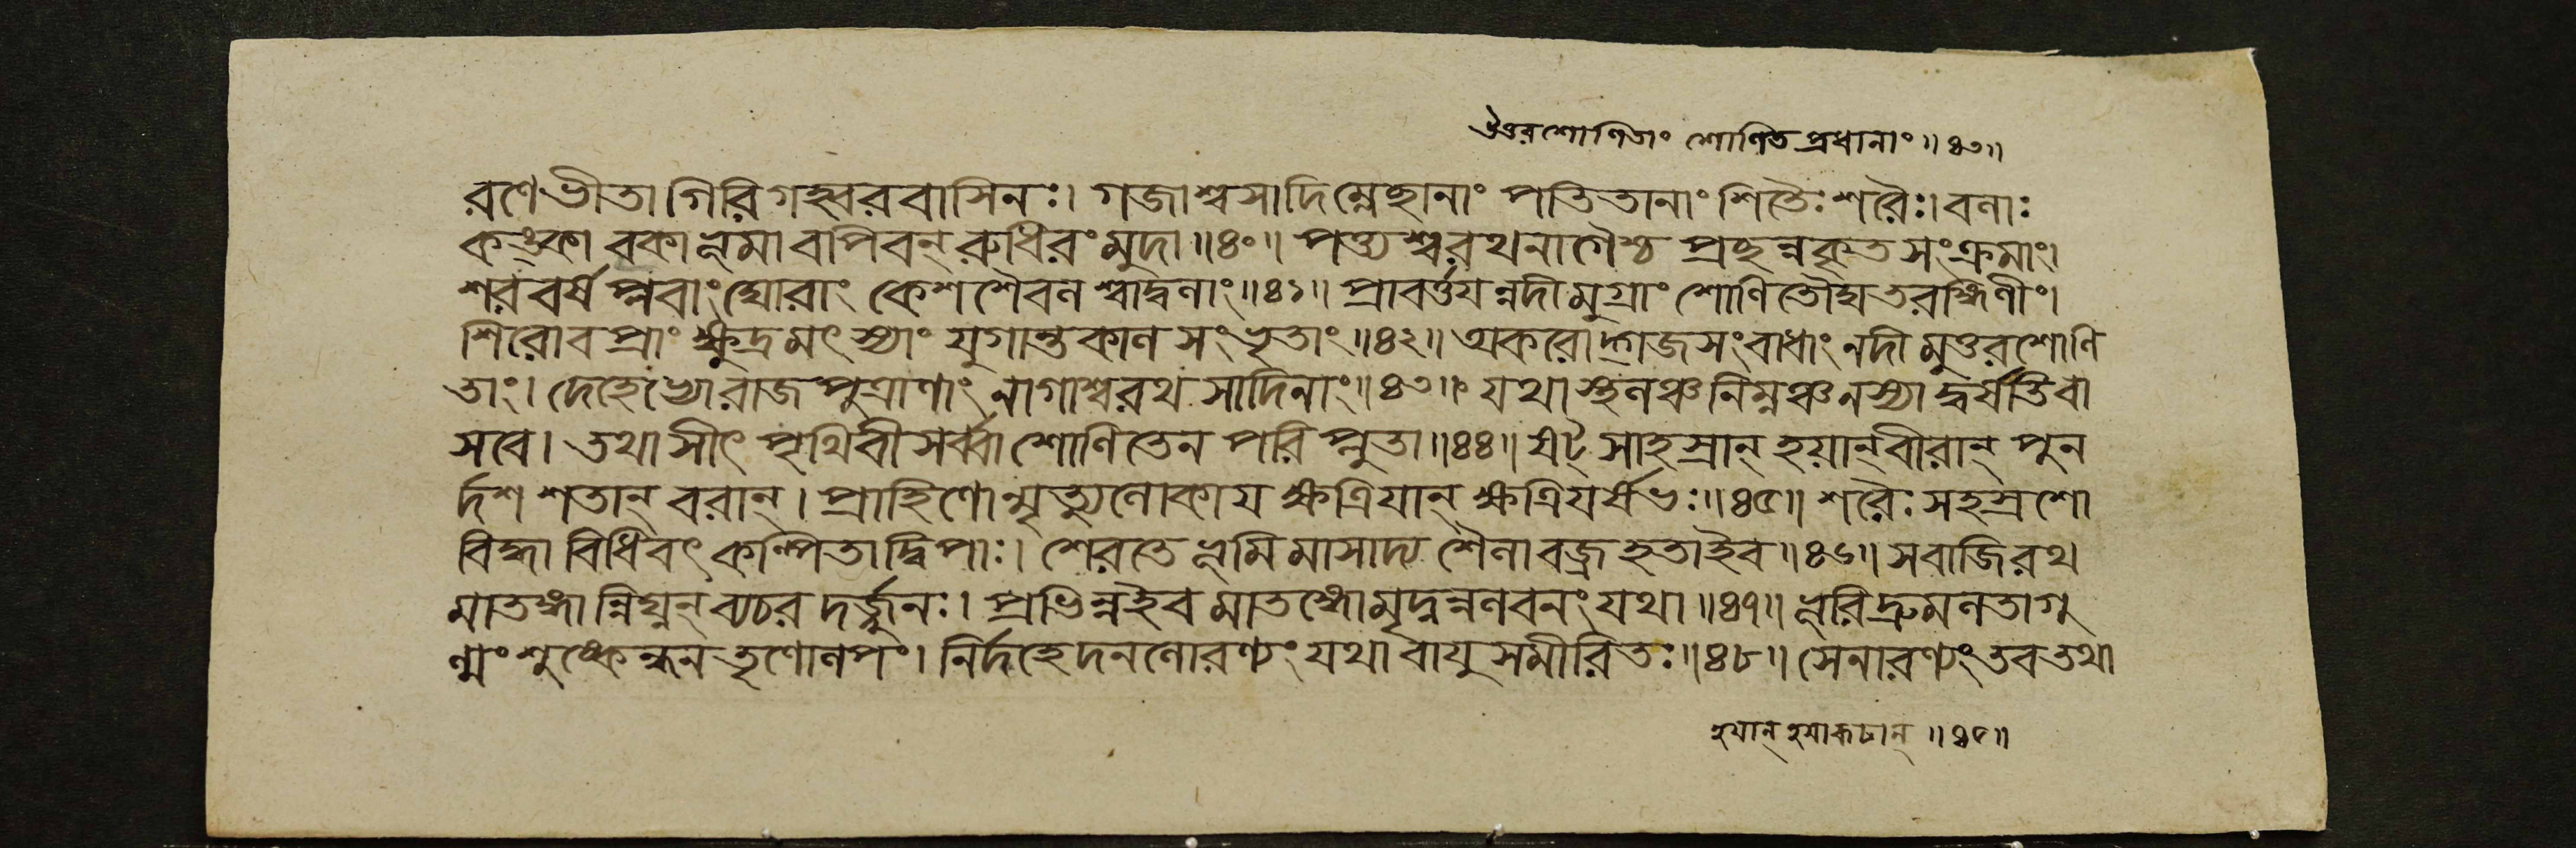 উত্তরশোণিতাং শোণিতপ্রধানাং॥৪৩॥
রণে ভীতা গিরিগহ্বরবাসিনঃ। গজাশ্বসাদিম্লেছানাং পতিতানাং শিতৈঃ শরৈঃ। বলাঃ
কঙ্কা বকা ভূমাবপিবন্ রুধিরং মুদা॥৪০॥ পত্ত্যশ্বরথনাগৈশ্চ প্রছন্নকৃতসংক্রমাং।
শরবর্ষপ্লবাং ঘোরাং কেশশৈবলশাদ্বলাং॥৪১॥ প্রাবর্ত্তযন্নদীমুগ্রাং শোণিতৌঘতরঙ্গিণীং।
শিরোবপ্রাং ক্ষুদ্রমৎস্যাং যুগান্তকালসংভৃতাং॥৪২॥ অকরোদ্গজসংবাধাং নদীমুত্তরশোণি
তাং। দেহেভ্যো রাজপুত্রাণাং নাগাশ্বরথসাদিনাং॥৪৩॥ যথা স্থলঞ্চ নিম্নঞ্চ ন স্যাদ্বর্ষতি বা
সবে। তথাসীৎ পৃথিবী সর্ব্বা শোণিতেন পরিপ্লুতা॥৪৪॥ ষট্ সাহস্রান্ হয়ান্ বীরান্ পুন
র্দশশতান্ বরান্। প্রাহিণোন্মৃত্যুলোকায ক্ষত্রিযান্ ক্ষত্রিযর্ষভঃ॥৪৫॥ শরৈঃ সহস্রশো
বিদ্ধা বিধিবৎ কল্পিতা দ্বিপাঃ। শেরতে ভূমিমাসাদ্য শৈলা বজ্রহতা ইব॥৪৬॥ সবাজিরথ
মাতঙ্গান্নিঘ্নন্ ব্যচরদর্জ্জুনঃ। প্রভিন্ন ইব মাতঙ্গো মৃদ্নন্নলবনং যথা॥৪৭॥ ভূরিদ্রুমলতাগু
ল্মং শুষ্কেন্ধনতৃণোলপং। নির্দহেদনলোরণ্যং যথা বাযুসমীরিতঃ॥৪৮॥ সেনারণ্যং তব তথা
হযান্ হযারূঢান্॥৪৫॥